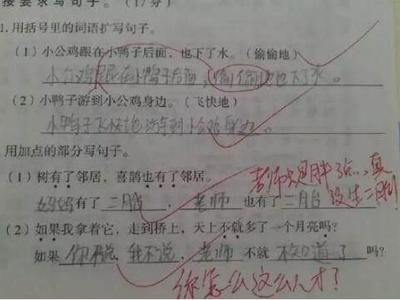 接要求写句子。(17分)
1. 用括号里的词语扩写句子。
(1)小公鸡跟在小鸭子后面,也下了水。(偷偷地)
小公鸡跟在小鸭子后面,偷偷地也下了水。
(2)小鸭子游到小公鸡身边。(飞快地)
小鸭子飞快地游到小公鸡身边。
用加点的部分写句子。
(1)树有了邻居,喜鹊也有了邻居。
老师只是胖了点,真
妈妈有了 二月台 , 老师 也有了 二月台
没生二胎!
(2)如果我拿着它,走到桥上,天上不就多了一个月亮吗?
如果 你不说,我不说 , 老师 不就 不知道了 吗?
你怎么这么人才?